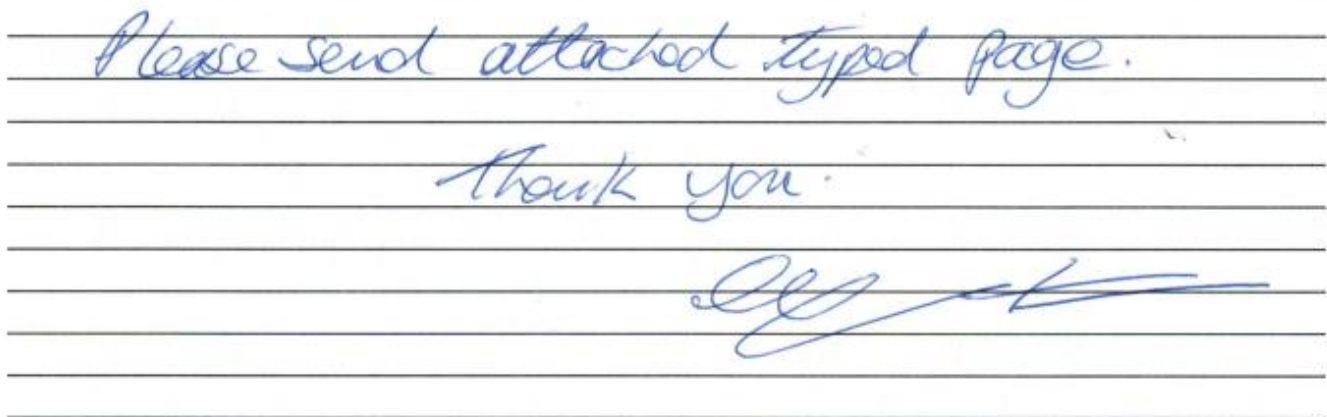 Please send attached typed page.
Thank you.